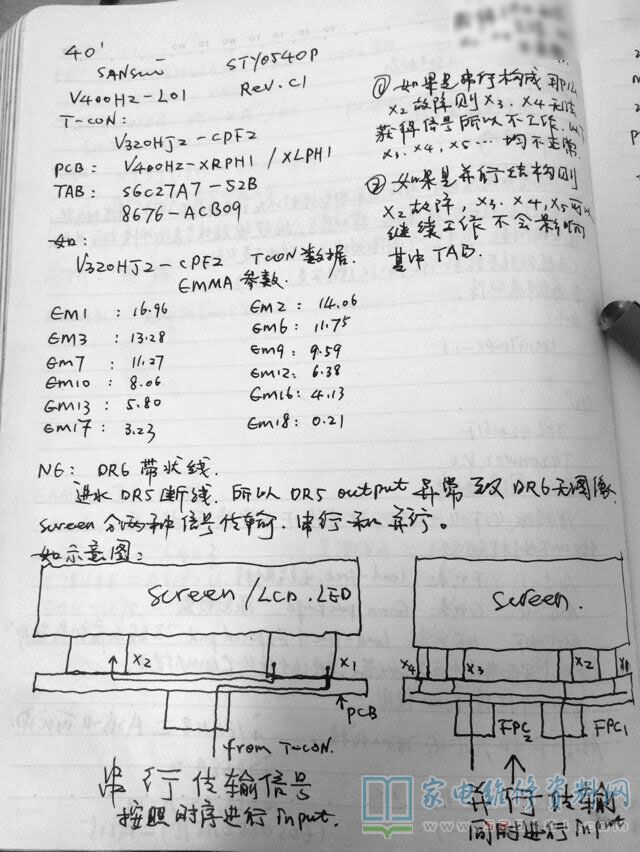 40'
SANSUI STY0540P
V400H2-L01 Rev.C1
T-CON:
V320HJ2-CPE2
PCB: V400H2-XRPH1 / XLPH1
TAB: S6C27A7-52B
8676-ACB09
① 如果是串行构成那么
X2故障则X3、X4无法
获得信号所以不工作,
X3,X4,X5…均不正常.
② 如果是并行结构则
X2故障,X3.X4,X5可以
继续工作不会影响
其中TAB.
如:
V320HJ2-CPE2 TCON数据.
EMMA参数.
Em1 : 16.96 Em2 : 14.06
Em3 : 13.28 Em6 : 11.75
Em7 : 11.27 Em9 : 9.59
Em10 : 8.06 Em12 : 6.38
Em13 : 5.80 Em16 : 4.13
Em17 : 3.23 Em18 : 0.21
NG: DR6带状线.
进水DR5断线.所以DR5 output异常致DR6无图像
screen分两种信号传输.串行和并行。
如示意图:
Screen/LCD.LED
X2 X1
PCB
from T-CON.
串行传输信号
按照时序进行Input.
Screen.
X4 X3 X2 X1
FPC2 FPC1
并行传输
同时进行Input
家电维修资料网